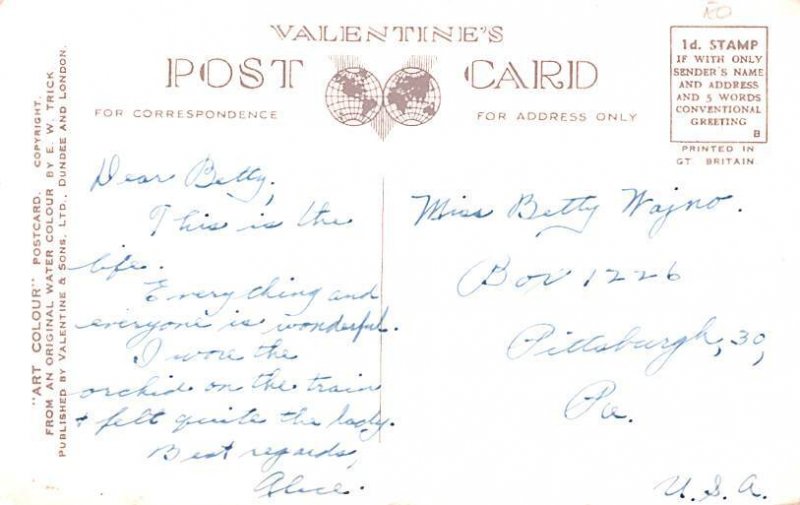 VALENTINE'S
POST CARD
FOR CORRESPONDENCE
FOR ADDRESS ONLY
1d. STAMP
IF WITH ONLY
SENDER'S NAME
AND ADDRESS
AND 5 WORDS
CONVENTIONAL
GREETING
B
PRINTED IN
GT BRITAIN
"ART COLOUR" POSTCARD. COPYRIGHT.
FROM AN ORIGINAL WATER COLOUR BY E. W. TRICK
PUBLISHED BY VALENTINE & SONS, LTD., DUNDEE AND LONDON.
Dear Betty,
This is the
life.
Everything and
everyone is wonderful.
I wore the
orchid on the train
+ felt quite the lady.
Best regards,
Alice.
Miss Betty Wajno.
Box 1226
Pittsburgh, 30,
Pa.
U.S.A.